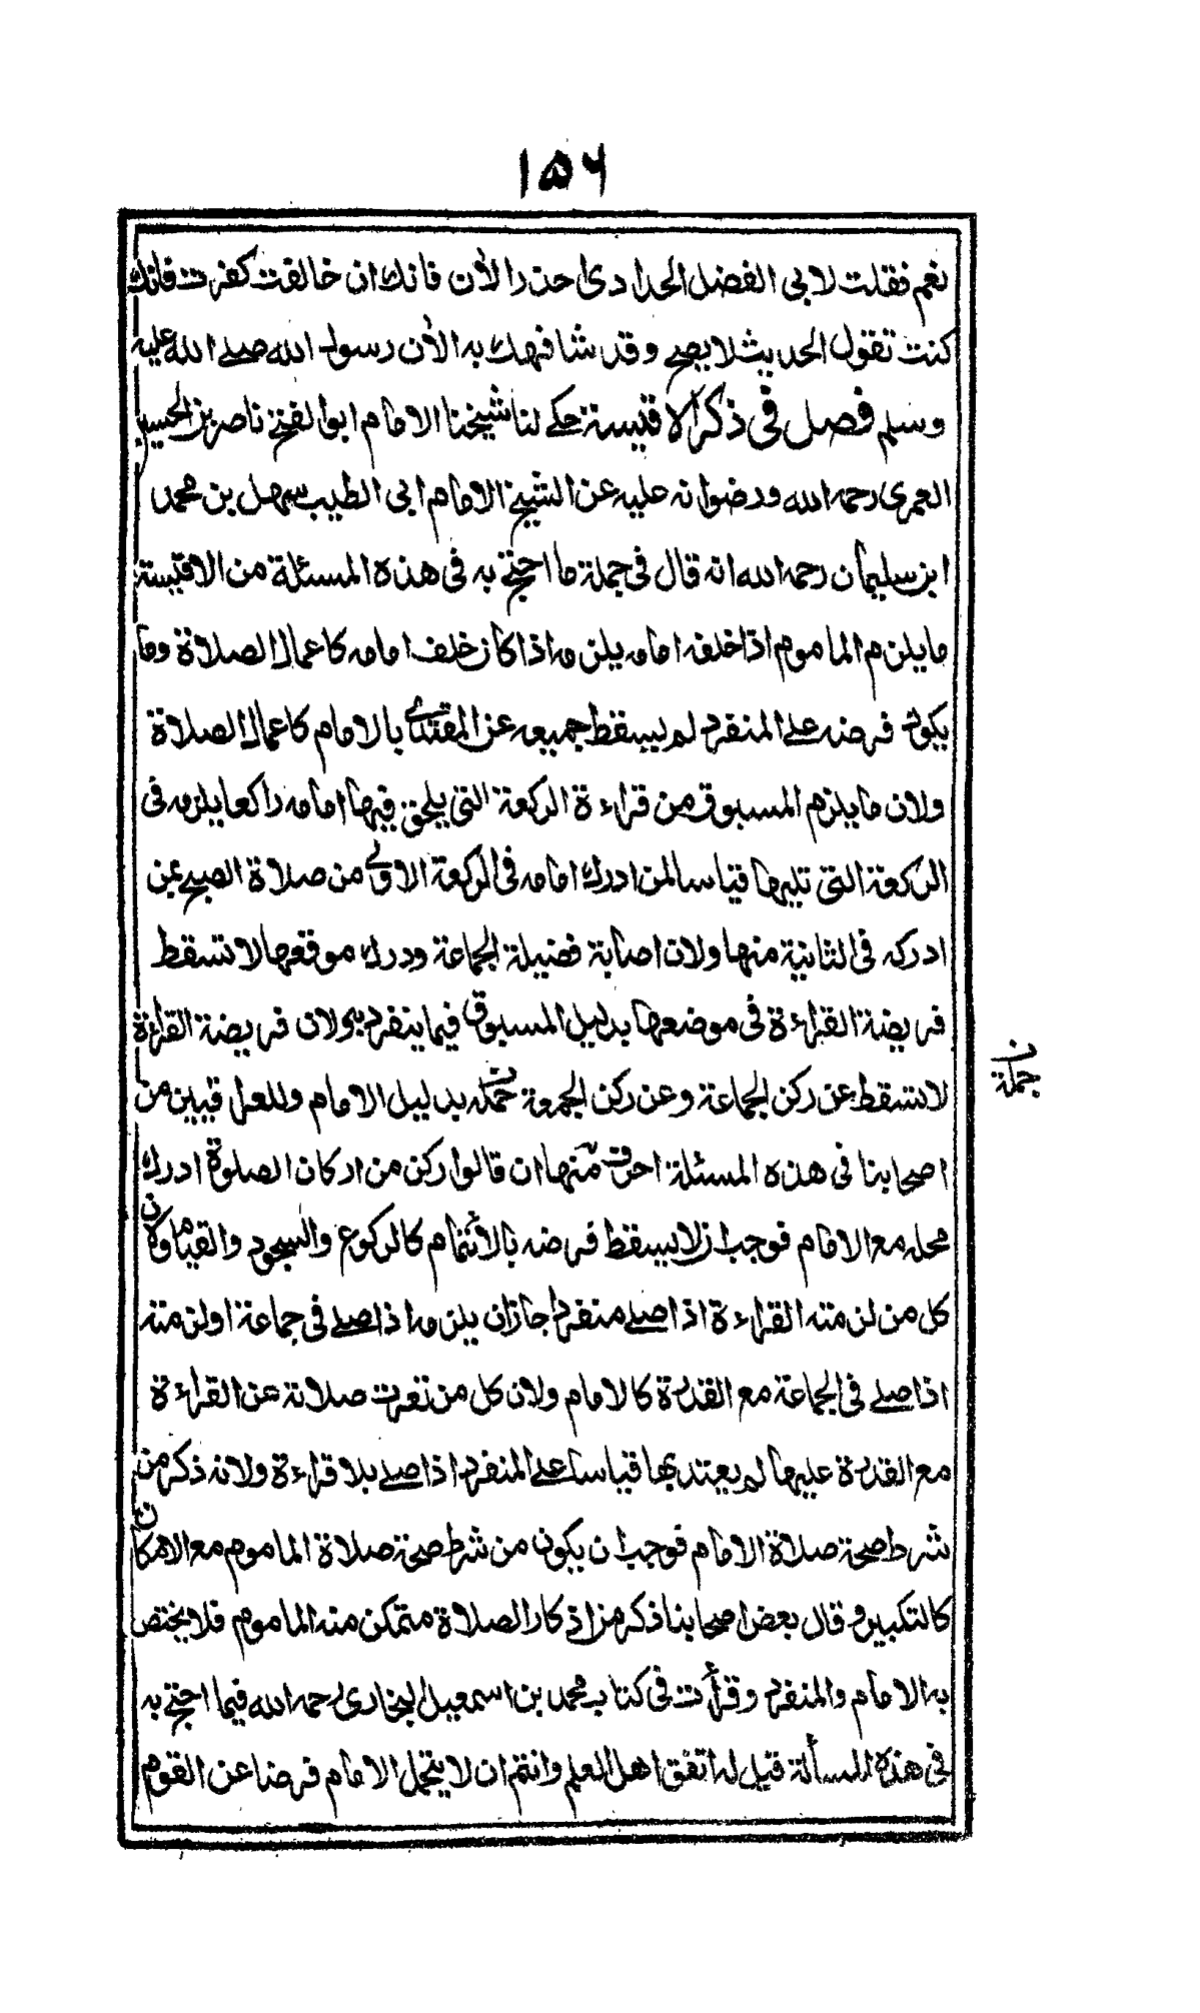 ۱۵۶
نعم فقلت لابى الفضل الحدادى احذر الأن فانك ان خالفت كفرت فانك
كنت تقول الحديث لا يصح وقد شافهك به الأن رسول الله صلى الله عليه
وسلم فصل فى ذكر الاقيسة حكى لنا شيخنا الامام ابو الفتح ناصر بن الحسين
العمرى رحمه الله ورضوانه عليه عن الشيخ الامام ابى الطيب سهل بن محمد
ابن سليمان رحمه الله انه قال فى جملة ما احتج به فى هذه المسئلة من الاقيسة
ما يلزم الماموم اذا خلفه امامه يلزمه اذا كان خلف امامه كاعمال الصلاة وما
يكون فرضه على المنفرد لم يسقط جميعه عن المقتدى بالامام كاعمال الصلاة
ولان ما يلزم المسبوق من قراءة الركعة التى يلحق فيها امامه راكعا يلزمه فى
الركعة التى تليها قياسا لمن ادرك امامه فى الركعة الاولى من صلاة الصبح بمن
ادركه فى الثانية منها ولان اصابة فضيلة الجماعة ودرك موقعها لا تسقط
فريضة القراءة فى موضعها بدليل المسبوق فيما ينفرد به ولان فريضة القراءة
لا تسقط عن ركن الجماعة وعن ركن الجمعة حمله بدليل الامام وللعل قيين من
ن
جملة
اصحابنا فى هذه المسئلة احرف منها ان قالوا ركن من اركان الصلوة ادرك
محله مع الامام فوجب ان لا يسقط فرضه بالأئتمام كالركوع والسجود والقيام ولان
كل من لزمته القراءة اذا صلى منفردا جاز ان يلزمه اذا صلى فى جماعة او لزمته
اذا صلى فى الجماعة مع القدرة كالامام ولان كل من تعرت صلاته عن القراءة
مع القدرة عليها لم يعتد بها قياسا على المنفرد اذا صلى بلا قراءة ولانه ذكر من
شرط صحة صلاة الامام فوجب ان يكون من شرط صحة صلاة الماموم مع الامكان
كالتكبير وقال بعض اصحابنا ذكر من اذكار الصلاة متمكن منه الماموم فلا يختص
به الامام والمنفرد وقرأت فى كتاب محمد بن اسمعيل البخارى رحمه الله فيما احتج به
فى هذه المسألة قيل له اتفق اهل العلم وانتم ان لا يتحمل الامام فرضا عن القوم